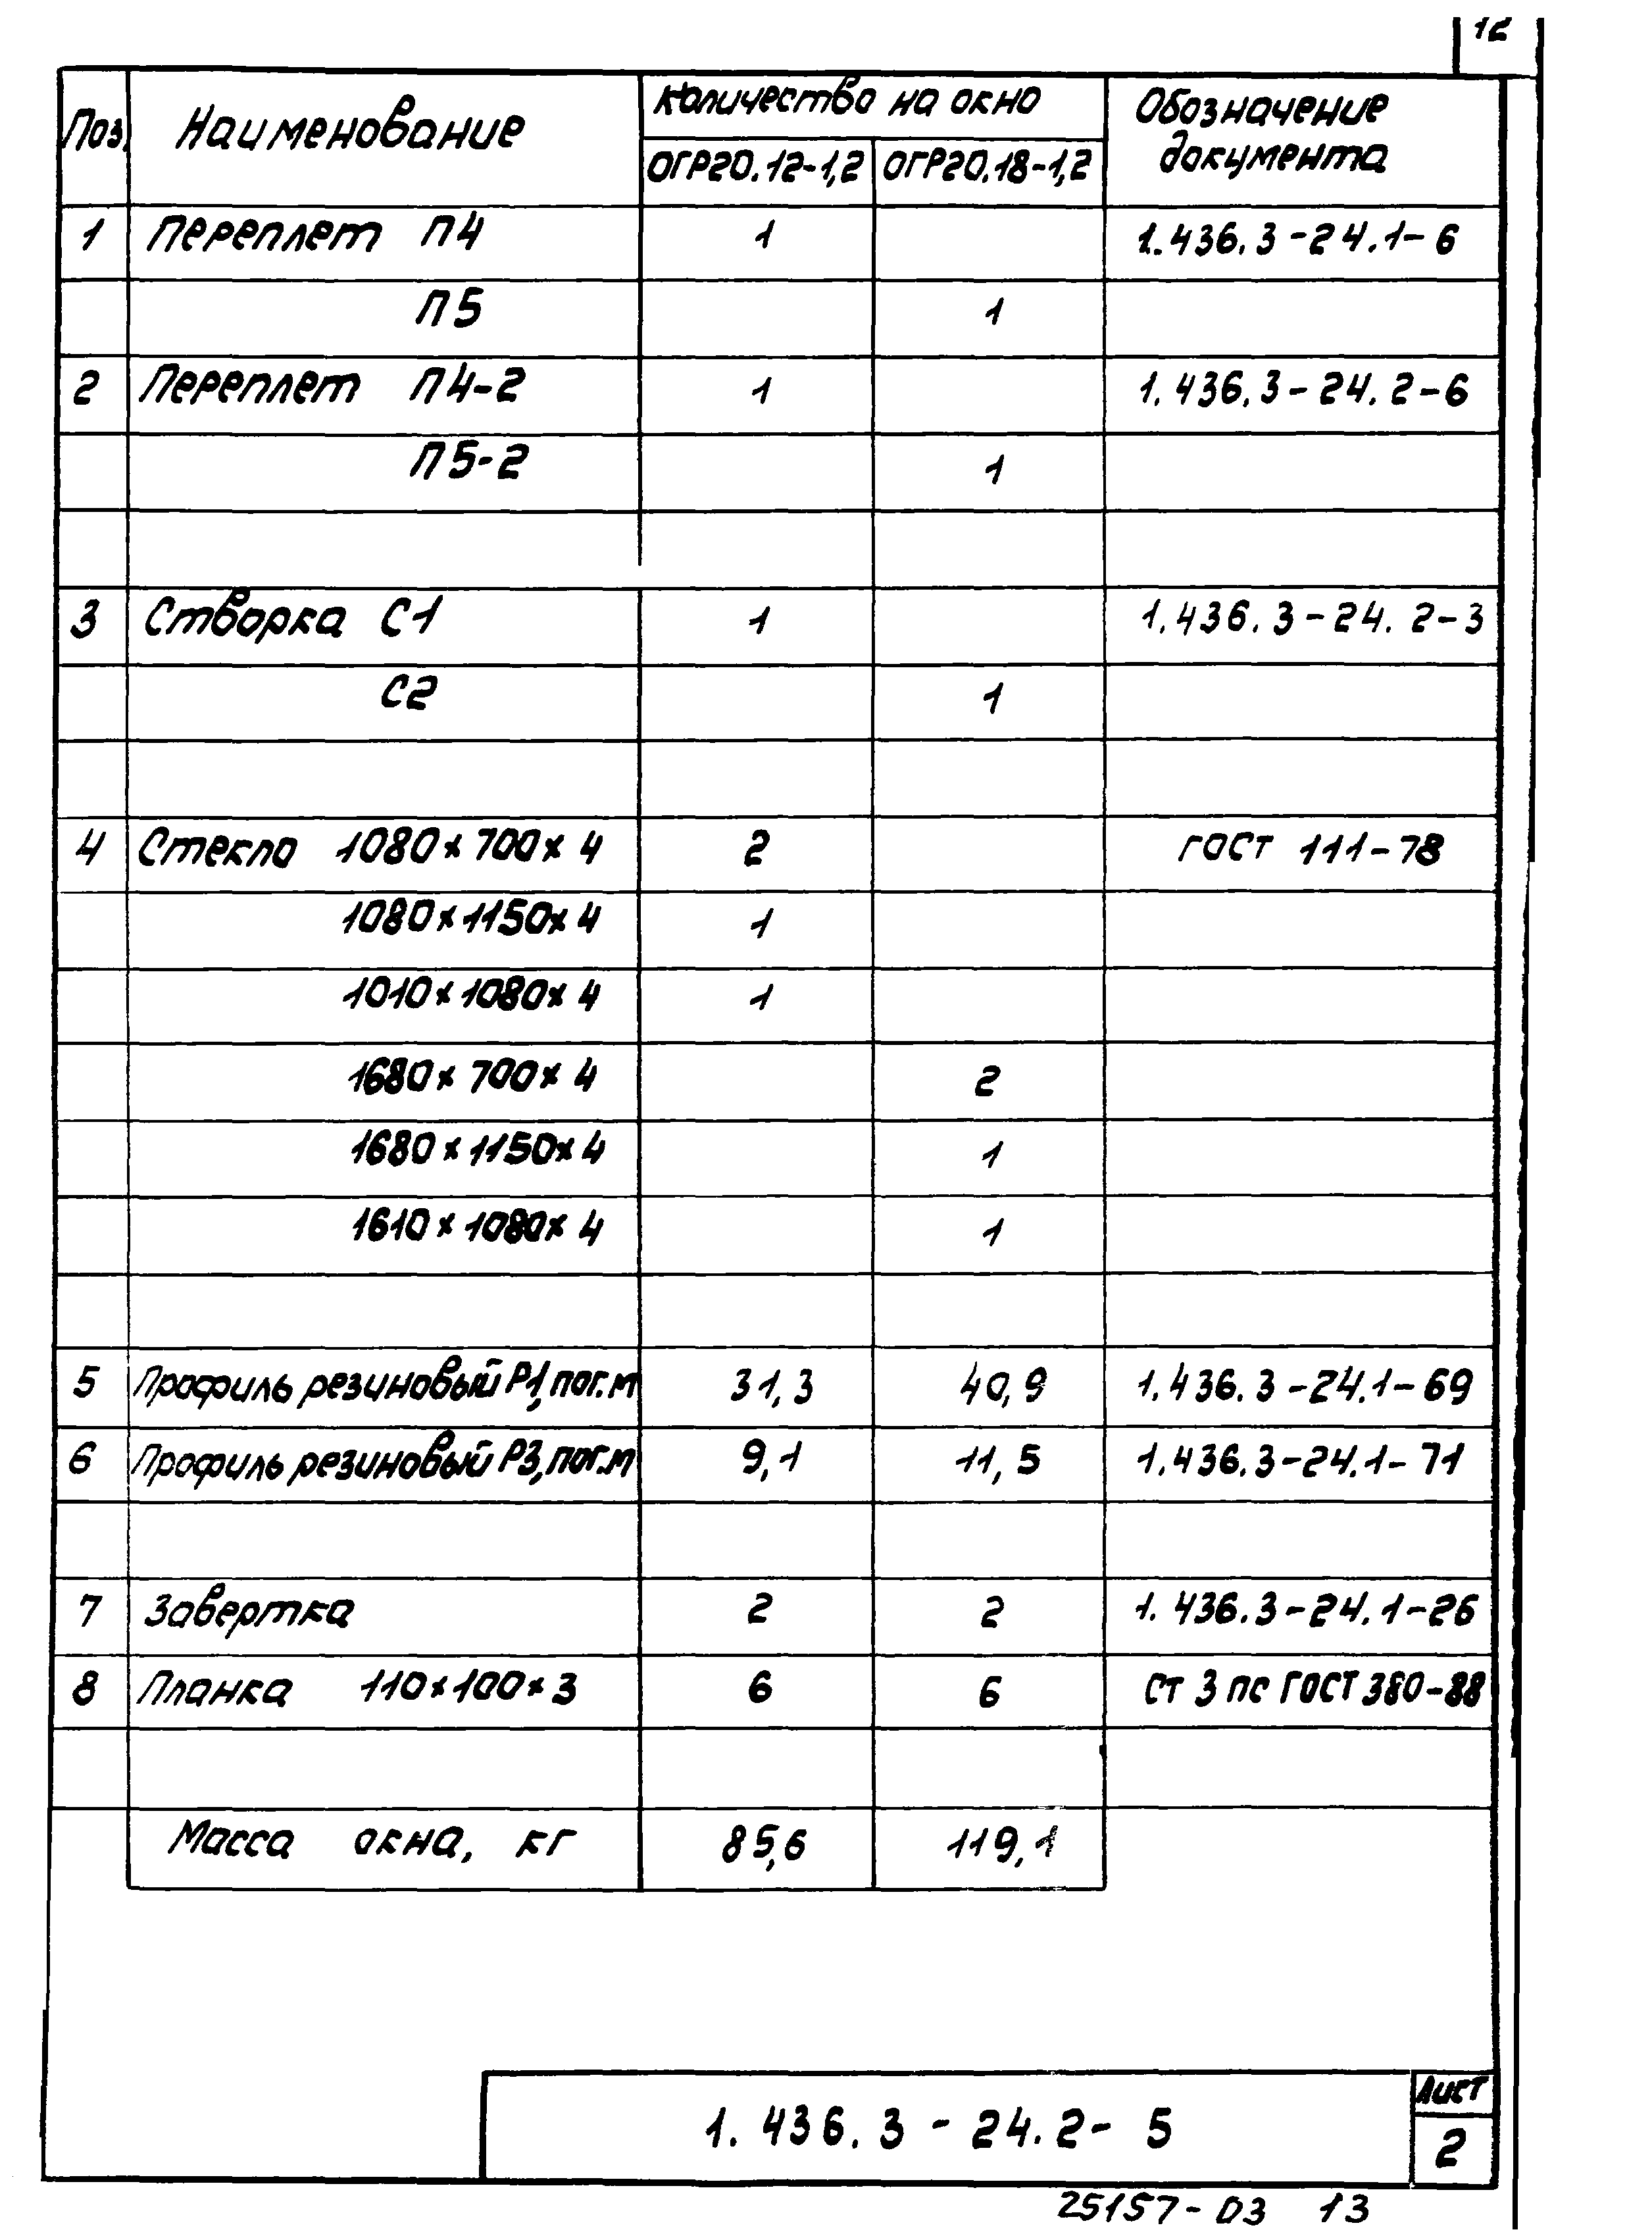 12
Поз. Наименование Количество на окно Обозначение документа
ОГР20.12-1,2 ОГР20.18-1,2
1 Переплет П4 1 1.436.3-24.1-6
П5 1
2 Переплет П4-2 1 1.436.3-24.2-6
П5-2 1
3 Створка С1 1 1.436.3-24.2-3
С2 1
4 Стекло 1080×700×4 2 ГОСТ 111-78
1080×1150×4 1
1010×1080×4 1
1680×700×4 2
1680×1150×4 1
1610×1080×4 1
5 Профиль резиновый Р1, пог.м 31,3 40,9 1.436.3-24.1-69
6 Профиль резиновый Р3, пог.м 9,1 11,5 1.436.3-24.1-71
7 Завертка 2 2 1.436.3-24.1-26
8 Планка 110×100×3 6 6 Ст 3 пс ГОСТ 380-88
Масса окна, кг 85,6 119,1
1.436.3-24.2-5
Лист
2
25157-03 13